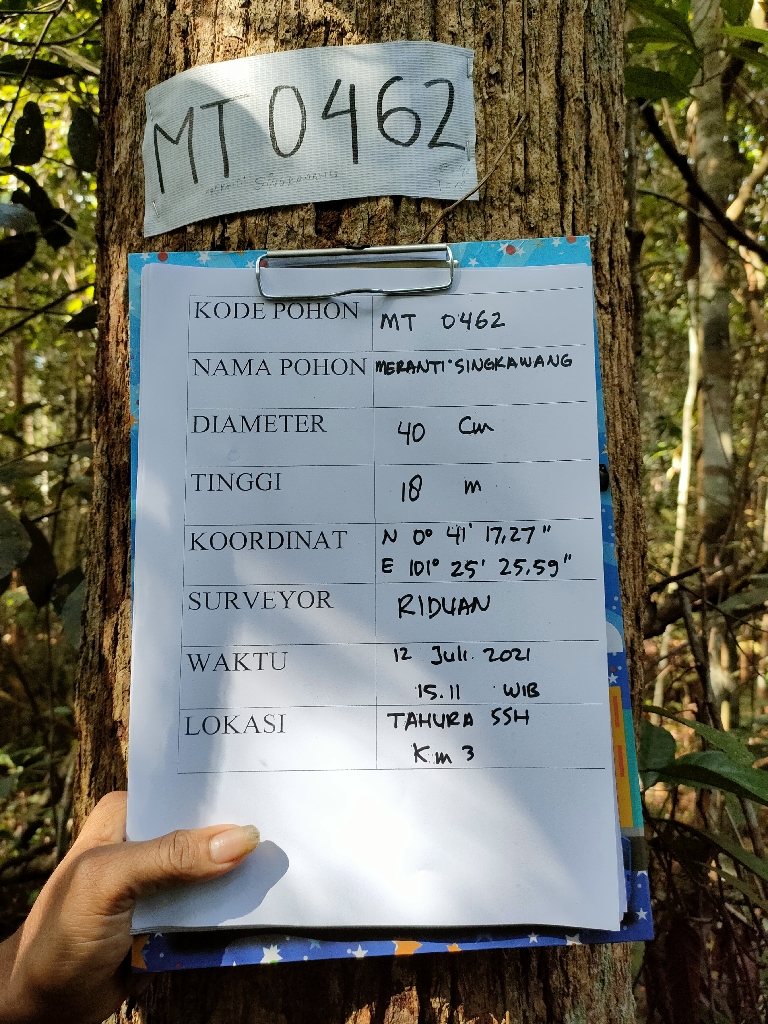 MT 0462
SINGKAWANG
KODE POHON MT 0462
NAMA POHON MERANTI SINGKAWANG
DIAMETER 40 Cm
TINGGI 18 m
KOORDINAT N 0° 41' 17,27"
E 101° 25' 25,59"
SURVEYOR RIDUAN
WAKTU 12 Juli 2021
15.11 WIB
LOKASI TAHURA SSH
Km 3